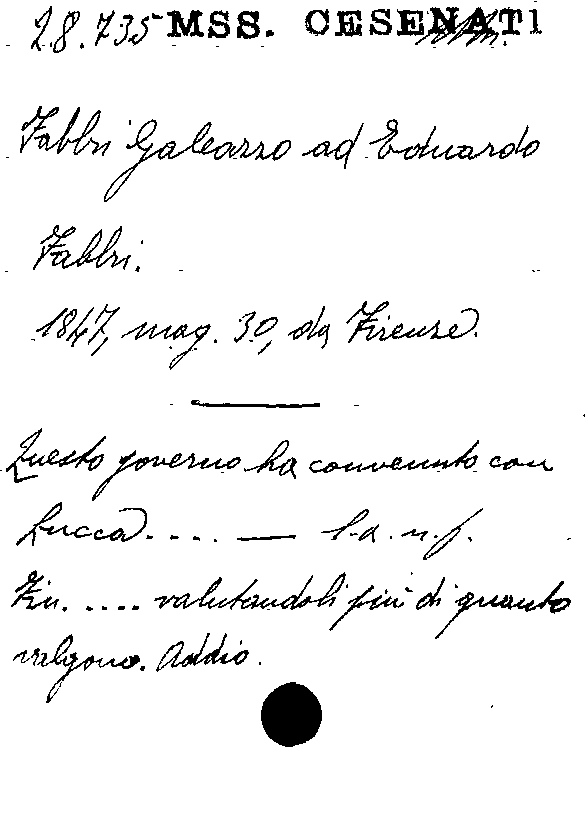 28.735 MSS. CESENATI
Fabbri Galeazzo ad Eduardo
Fabbri.
1847, mag. 30, da Firenze.
Questo governo ha convenuto con
Lucca..... — l.a.n.f.
Fin. .... valutandoli più di quanto
valgono. Addio.